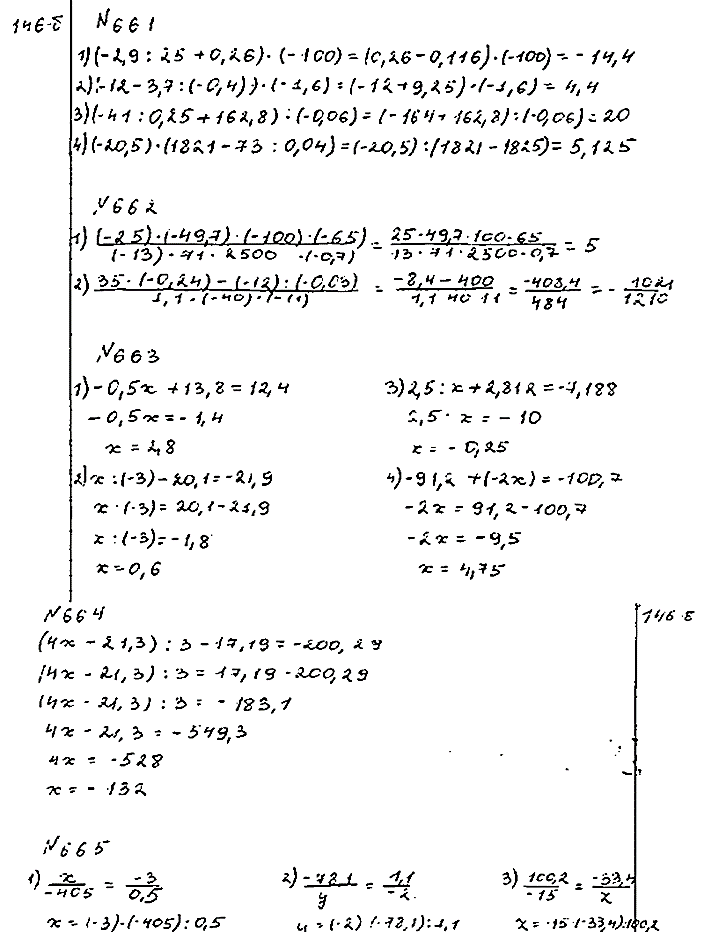 146-б
№661
1) (-2,9 : 25 + 0,26) · (-100) = (0,26 - 0,116) · (-100) = -14,4
2) (-12 - 3,7 : (-0,4)) · (-1,6) = (-12 + 9,25) · (-1,6) = 4,4
3) (-41 : 0,25 + 162,8) : (-0,06) = (-164 + 162,8) : (-0,06) = 20
4) (-20,5) · (1821 - 73 : 0,04) = (-20,5) : (1821 - 1825) = 5,125
№662
1) (-25) · (-49,7) · (-100) · (-65) / (-13) · 71 · 2500 · (-0,7) = 25 · 49,7 · 100 · 65 / 13 · 71 · 2500 · 0,7 = 5
2) 35 · (-0,24) - (-12) : (-0,03) / 1,1 · (-40) · (-11) = -8,4 - 400 / 1,1 · 40 · 11 = -408,4 / 484 = - 1021 / 1210
№663
1) -0,5x + 13,8 = 12,4
-0,5x = -1,4
x = 2,8
2) x : (-3) - 20,1 = -21,9
x · (-3) = 20,1 - 21,9
x : (-3) = -1,8
x = 0,6
3) 2,5 : x + 2,812 = -7,188
2,5 · x = -10
x = -0,25
4) -91,2 + (-2x) = -100,7
-2x = 91,2 - 100,7
-2x = -9,5
x = 4,75
№664
146-б
(4x - 21,3) : 3 - 17,19 = -200,29
(4x - 21,3) : 3 = 17,19 - 200,29
(4x - 21,3) : 3 = -183,1
4x - 21,3 = -549,3
4x = -528
x = -132
№665
1) x / -405 = -3 / 0,5
x = (-3) · (-405) : 0,5
2) -78,1 / y = 1,1 / -2
y = (-2) · (-78,1) : 1,1
3) 100,2 / -15 = -33,4 / x
x = -15 · (-33,4) : 100,2